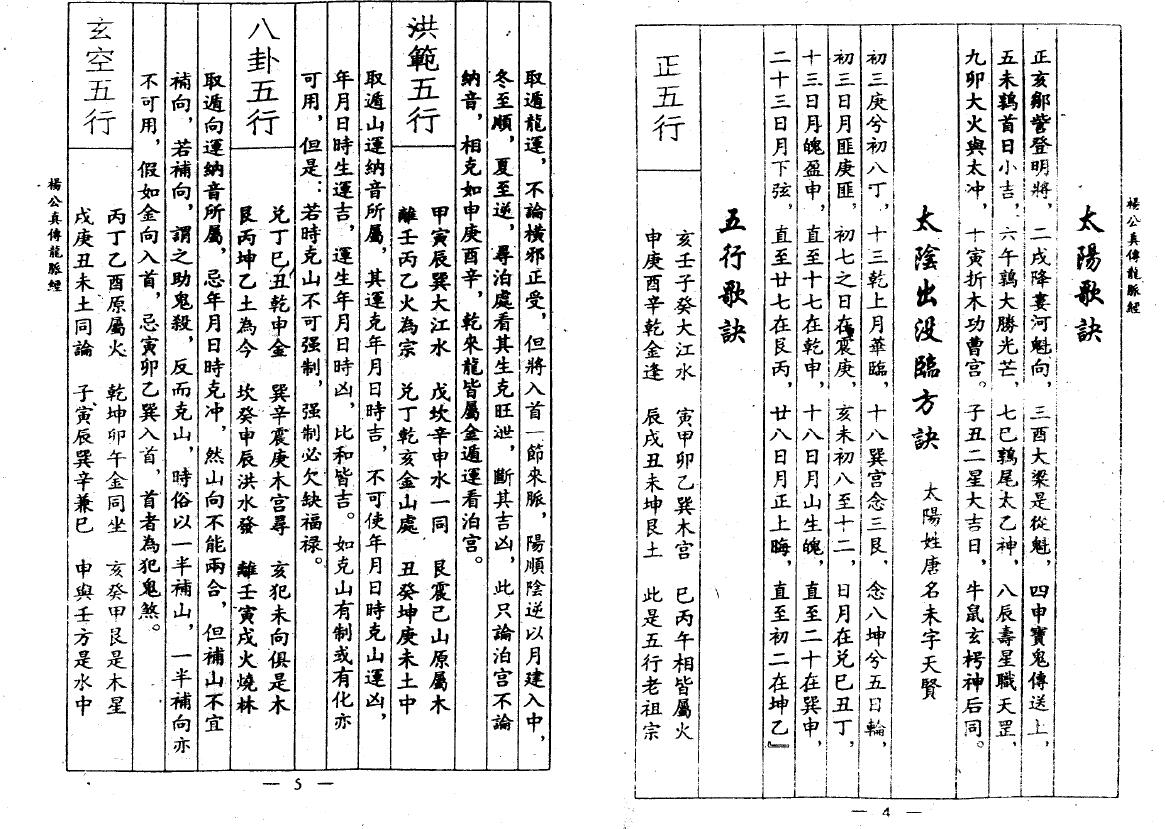 楊公真傳龍脈經
太陽歌訣
正亥鄒訾登明將，二戌降婁河魁向，三酉大梁是從魁，四申實鬼傳送上，
五未鶉首日小吉，六午鶉大勝光芒，七巳鶉尾太乙神，八辰壽星職天罡，
九卯大火與太冲，十寅折木功曹宫。子丑二星大吉日，牛鼠玄枵神后同。
太陰出没臨方訣 太陽姓唐名未字天賢
初三庚兮初八丁，十三乾上月華臨，十八巽宫念三艮，念八坤兮五日輪，
初三日月匪庚匪，初七之日在震庚，亥未初八至十二，日月在兑巳丑丁，
十三日月魄盈申，直至十七在乾申，十八日月山生魄，直至二十在巽申，
二十三日月下弦，直至廿七在艮丙，廿八日月正上晦，直至初二在坤乙』
五行歌訣
正五行
亥壬子癸大江水 寅甲卯乙巽木宫 巳丙午相皆屬火
申庚酉辛乾金逢 辰戌丑未坤艮土 此是五行老祖宗
— 4 —
取遁龍運，不論横邪正受，但將入首一節來脈，陽順陰逆以月建入中，
冬至順，夏至逆，尋泊處看其生克旺泄，斷其吉凶，此只論泊宫不論
納音，相克如申庚酉辛，乾來龍皆屬金遁運看泊宫。
洪範五行
甲寅辰巽大江水 戊坎辛申水一同 艮震己山原屬木
離壬丙乙火為宗 兑丁乾亥金山處 丑癸坤庚未土中
取遁山運納音所屬，其運克年月日時吉，不可使年月日時克山運凶，
年月日時生運吉，運生年月日時凶，比和皆吉。如克山有制或有化亦
可用，但是：若時克山不可强制，强制必欠缺福禄。
八卦五行
兑丁巳丑乾申金 巽辛震庚木宫尋 亥犯未向俱是木
艮丙坤乙土為今 坎癸申辰洪水發 離壬寅戌火燒林
取遁向運納音所屬，忌年月日時克冲，然山向不能兩合，但補山不宜
補向，若補向，謂之助鬼殺，反而克山，時俗以一半補山，一半補向亦
不可用，假如金向入首，忌寅卯乙巽入首，首者為犯鬼煞。
玄空五行
丙丁乙酉原屬火 乾坤卯午金同坐 亥癸甲艮是木星
戌庚丑未土同論 子寅辰巽辛兼巳 申與壬方是水中
楊公真傳龍脈經
— 5 —